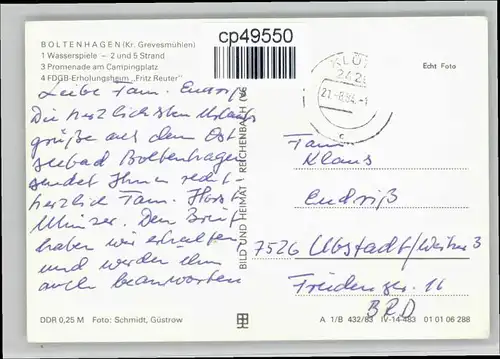 cp49550
BOLTENHAGEN (Kr. Grevesmühlen)
1 Wasserspiele – 2 und 5 Strand
3 Promenade am Campingplatz
4 FDGB-Erholungsheim „Fritz Reuter"
Echt Foto
KLÜ
242
21.-8.84.-1
c
Leibe Fam. Endriß
Die herzlichsten Urlaubs
grüße aus dem Ost
seebad Boltenhagen
sendet Ihnen recht-
herzlich Fam. Horst
Münzer. Den Brief
haben wir erhalten,
und werden ihn
auch beantworten
BILD UND HEIMAT REICHENBACH (
Fam
Klaus
Endriß
7526 Ubstadt/Weiher 3
Friedenstr. 16
BRD
DDR 0,25 M Foto: Schmidt, Güstrow
A 1/B 432/83 IV-14-483 01 01 06 288